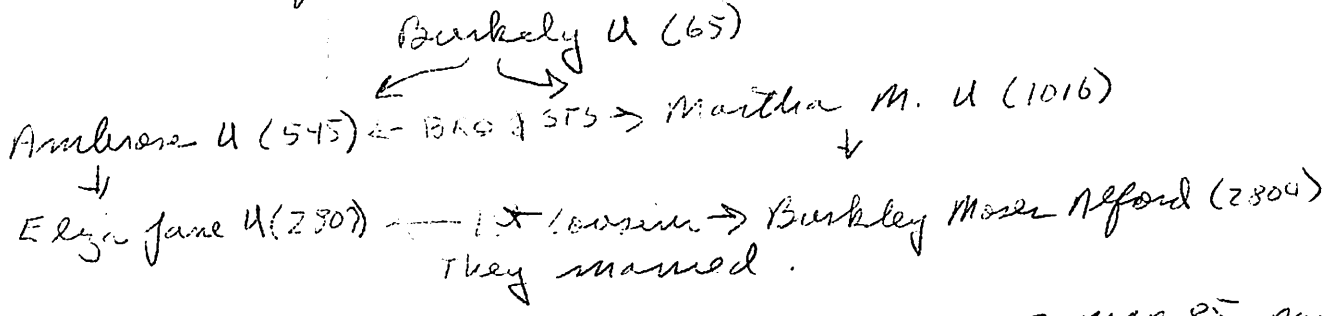 Burkely U (65)
Ambrose U (545) ← BRO & SIS → Martha M. U (1016)
Eliza Jane U (2803) ← 1st cousin → Burkley Moses Alford (2804)
They married.